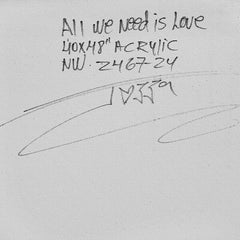 All we Need is Love
40x48" ACRYlic
NW. 246724